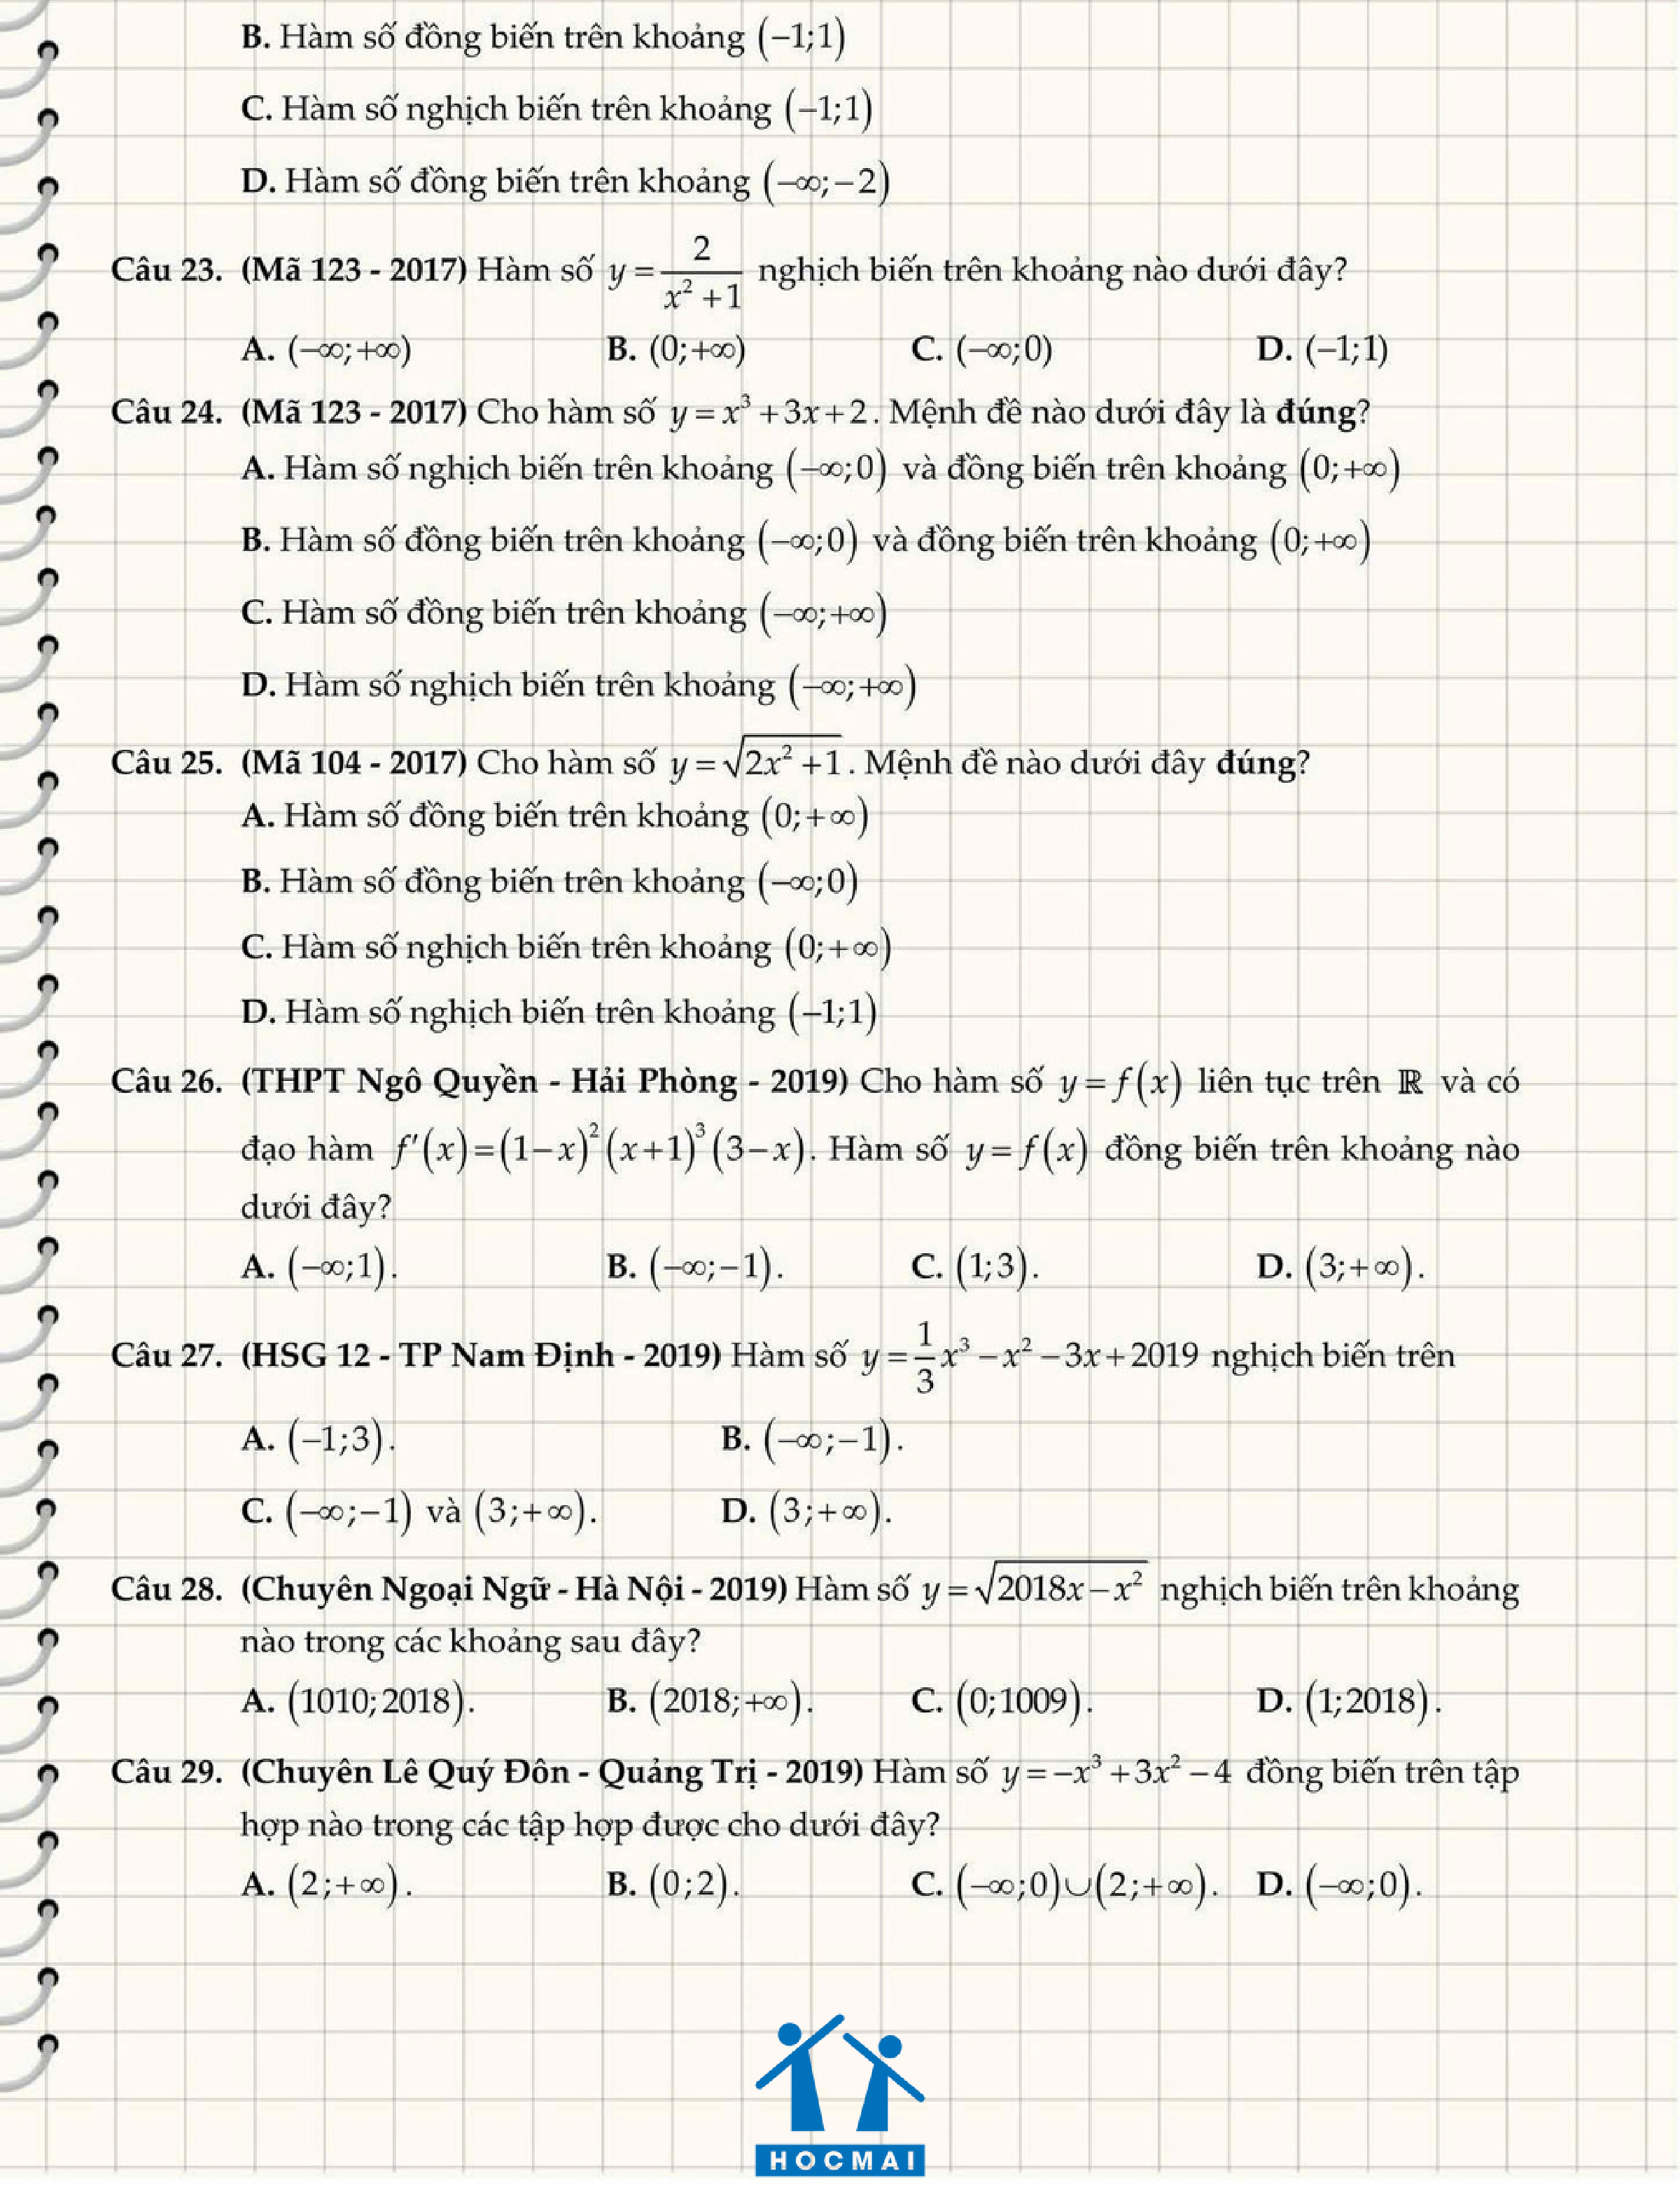 B. Hàm số đồng biến trên khoảng (−1;1)
C. Hàm số nghịch biến trên khoảng (−1;1)
D. Hàm số đồng biến trên khoảng (−∞;−2)
Câu 23. (Mã 123 - 2017) Hàm số y = 2/(x² + 1) nghịch biến trên khoảng nào dưới đây?
A. (−∞;+∞) B. (0;+∞) C. (−∞;0) D. (−1;1)
Câu 24. (Mã 123 - 2017) Cho hàm số y = x³ + 3x + 2. Mệnh đề nào dưới đây là đúng?
A. Hàm số nghịch biến trên khoảng (−∞;0) và đồng biến trên khoảng (0;+∞)
B. Hàm số đồng biến trên khoảng (−∞;0) và đồng biến trên khoảng (0;+∞)
C. Hàm số đồng biến trên khoảng (−∞;+∞)
D. Hàm số nghịch biến trên khoảng (−∞;+∞)
Câu 25. (Mã 104 - 2017) Cho hàm số y = √(2x² + 1). Mệnh đề nào dưới đây đúng?
A. Hàm số đồng biến trên khoảng (0;+∞)
B. Hàm số đồng biến trên khoảng (−∞;0)
C. Hàm số nghịch biến trên khoảng (0;+∞)
D. Hàm số nghịch biến trên khoảng (−1;1)
Câu 26. (THPT Ngô Quyền - Hải Phòng - 2019) Cho hàm số y = f(x) liên tục trên ℝ và có
đạo hàm f′(x) = (1−x)²(x+1)³(3−x). Hàm số y = f(x) đồng biến trên khoảng nào
dưới đây?
A. (−∞;1). B. (−∞;−1). C. (1;3). D. (3;+∞).
Câu 27. (HSG 12 - TP Nam Định - 2019) Hàm số y = 1/3 x³ − x² − 3x + 2019 nghịch biến trên
A. (−1;3). B. (−∞;−1).
C. (−∞;−1) và (3;+∞). D. (3;+∞).
Câu 28. (Chuyên Ngoại Ngữ - Hà Nội - 2019) Hàm số y = √(2018x − x²) nghịch biến trên khoảng
nào trong các khoảng sau đây?
A. (1010;2018). B. (2018;+∞). C. (0;1009). D. (1;2018).
Câu 29. (Chuyên Lê Quý Đôn - Quảng Trị - 2019) Hàm số y = −x³ + 3x² − 4 đồng biến trên tập
hợp nào trong các tập hợp được cho dưới đây?
A. (2;+∞). B. (0;2). C. (−∞;0)∪(2;+∞). D. (−∞;0).
HOCMAI